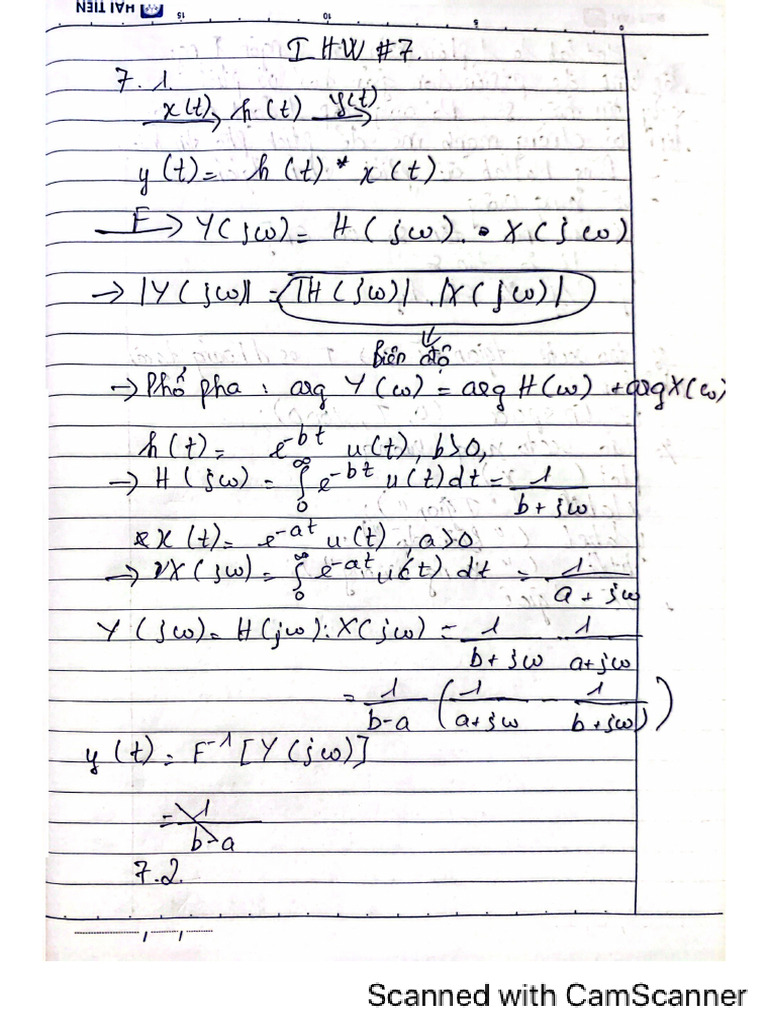 HẢI TIẾN
15 10 5 0
I HW #7.
7. 1.
x(t) → h(t) y(t) →
y(t) = h(t) * x(t)
F → Y(jω) = H(jω) . X(jω)
→ |Y(jω)| = |H(jω)| . |X(jω)|
Biên độ
→ Phổ pha : arg Y(ω) = arg H(ω) + arg X(ω)
h(t) = e^-bt u(t), b>0,
→ H(jω) = ∫0^∞ e^-bt u(t) dt = 1/(b + jω)
x(t) = e^-at u(t), a>0
→ X(jω) = ∫0^∞ e^-at u(t) dt = 1/(a + jω)
Y(jω) = H(jω) . X(jω) = 1/(b + jω) . 1/(a + jω)
= 1/(b-a) (1/(a + jω) - 1/(b + jω))
y(t) = F^-1 [Y(jω)]
= 1/(b-a)
7.2.
Scanned with CamScanner